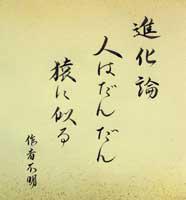 進化論
人はだんだん
猿に似る
作者不明